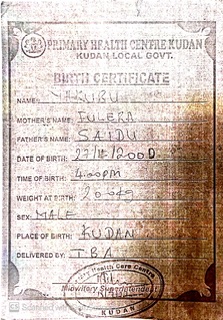 PRIMARY HEALTH CENTRE KUDAN
KUDAN LOCAL GOVT.
BIRTH CERTIFICATE
NAME: YAKUBU
MOTHER'S NAME: FULERA
FATHER'S NAME: SAIDU
DATE OF BIRTH: 27/11/2000
TIME OF BIRTH: 4:00PM
WEIGHT AT BIRTH:
SEX: MALE
PLACE OF BIRTH: KUDAN
DELIVERED BY: TBA
Health Care Centre
Midwifery Superintendent
KUDAN